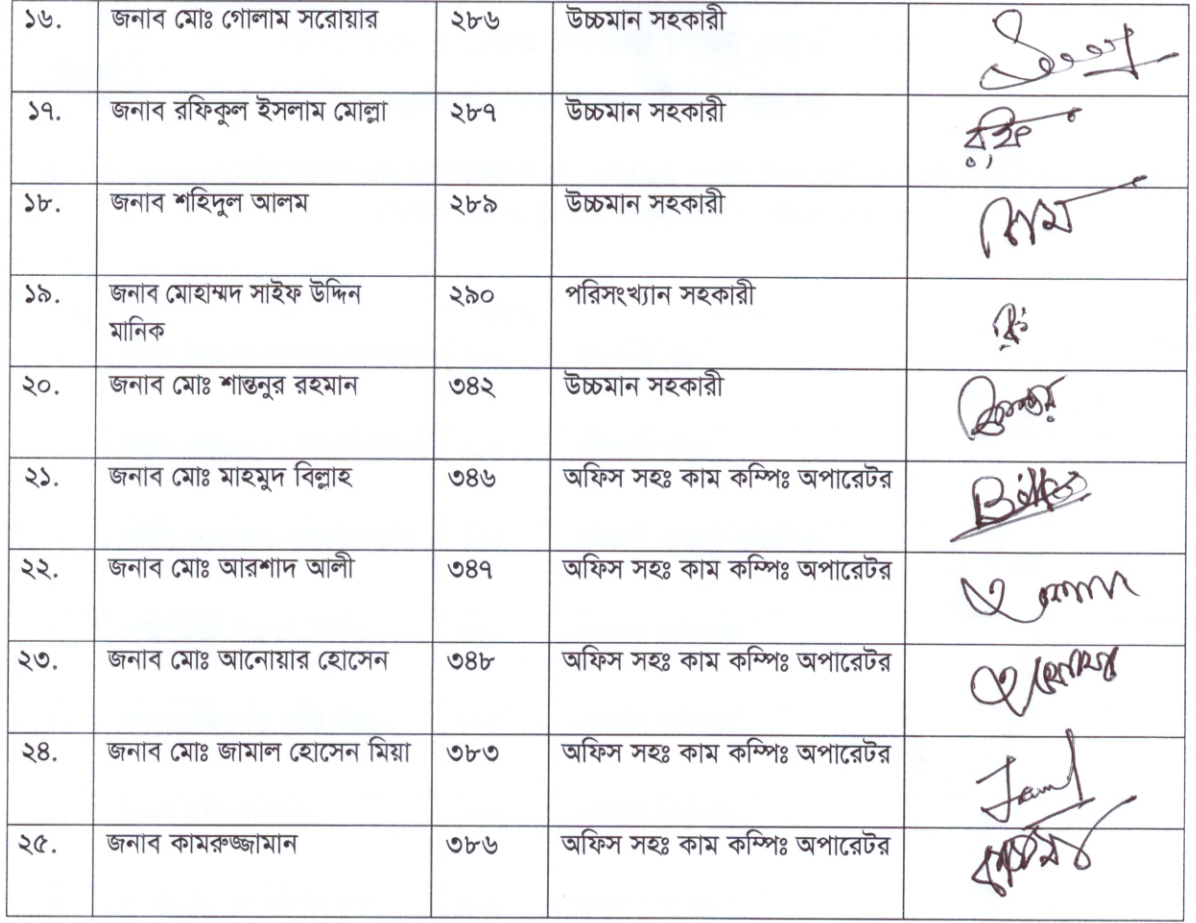 ১৬. জনাব মোঃ গোলাম সরোয়ার ২৮৬ উচ্চমান সহকারী
১৭. জনাব রফিকুল ইসলাম মোল্লা ২৮৭ উচ্চমান সহকারী
১৮. জনাব শহিদুল আলম ২৮৯ উচ্চমান সহকারী
১৯. জনাব মোহাম্মদ সাইফ উদ্দিন ২৯০ পরিসংখ্যান সহকারী
মানিক
২০. জনাব মোঃ শান্তনুর রহমান ৩৪২ উচ্চমান সহকারী
২১. জনাব মোঃ মাহমুদ বিল্লাহ ৩৪৬ অফিস সহঃ কাম কম্পিঃ অপারেটর
২২. জনাব মোঃ আরশাদ আলী ৩৪৭ অফিস সহঃ কাম কম্পিঃ অপারেটর
২৩. জনাব মোঃ আনোয়ার হোসেন ৩৪৮ অফিস সহঃ কাম কম্পিঃ অপারেটর
২৪. জনাব মোঃ জামাল হোসেন মিয়া ৩৮৩ অফিস সহঃ কাম কম্পিঃ অপারেটর
২৫. জনাব কামরুজ্জামান ৩৮৬ অফিস সহঃ কাম কম্পিঃ অপারেটর